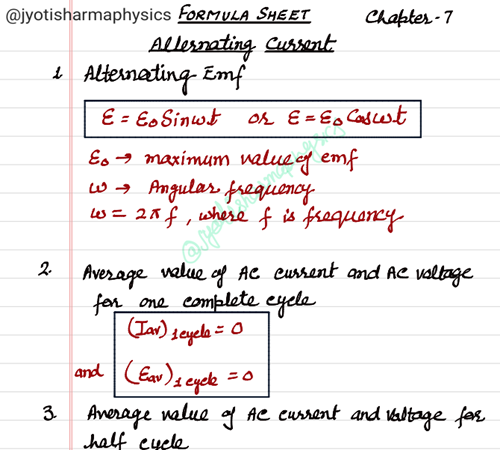 @jyotisharmaphysics FORMULA SHEET Chapter-7
Alternating Current
1. Alternating Emf
ε = ε₀ Sinωt or ε = ε₀ Cosωt
ε₀ → maximum value of emf
ω → Angular frequency
ω = 2πf, where f is frequency
@jyotisharmaphysics
2. Average value of AC current and AC voltage
for one complete cycle
(Iav)₁ cycle = 0
and (Eav)₁ cycle = 0
3. Average value of AC current and voltage for
half cycle